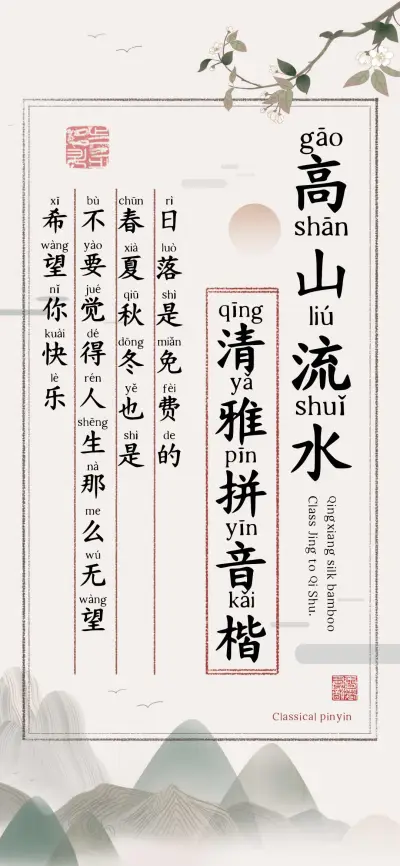 gāo shān liú shuǐ
高山流水
qīng yǎ pīn yīn kǎi
清雅拼音楷
Qingxiang silk bamboo
Class Jing to Qi Shu.
rì luò shì miǎn fèi de
日落是免费的
chūn xià qiū dōng yě shì
春夏秋冬也是
bù yào jué dé rén shēng nà me wú wàng
不要觉得人生那么无望
xī wàng nǐ kuài lè
希望你快乐
Classical pinyin